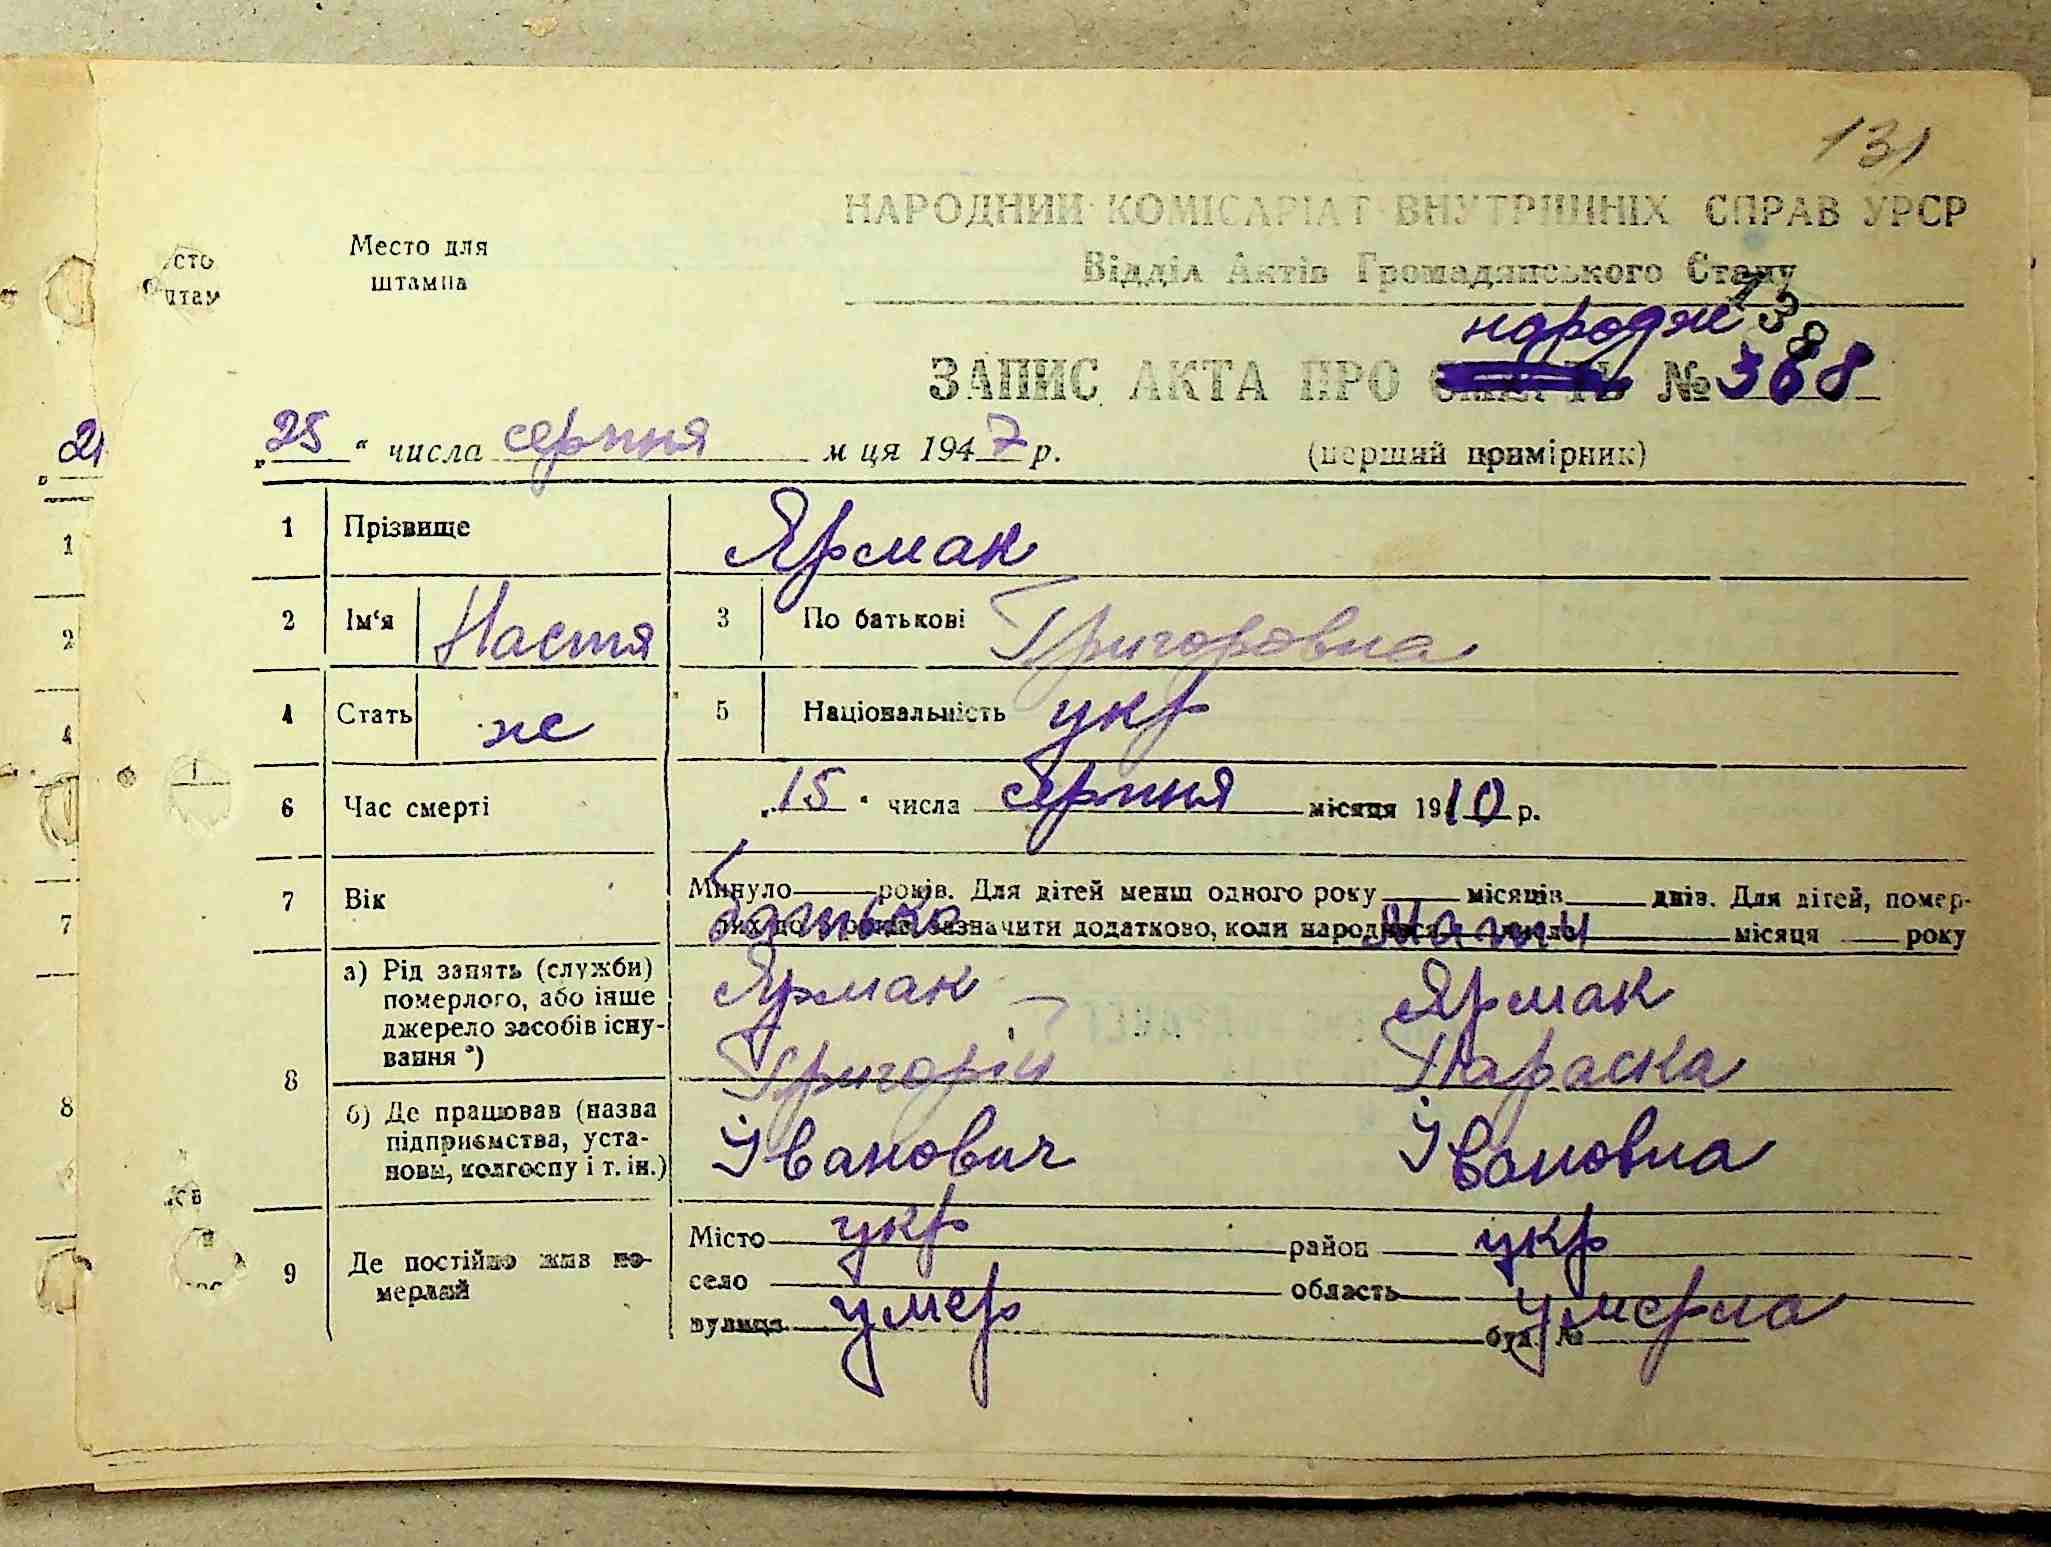 131
НАРОДНИЙ КОМІСАРІАТ ВНУТРІШНІХ СПРАВ УРСР
Відділ Актів Громадянського Стану
Место для
штампа
сто
штам
народж 138
ЗАПИС АКТА ПРО СМЕРТЬ № 368
„25“ числа серпня м ця 1947 р. (перший примірник)
1 Прізвище Ярмак
2 Ім‘я Настя 3 По батькові Григоровна
4 Стать ж 5 Національність укр
6 Час смерті „15“ числа серпня місяця 1910 р.
7 Вік Минуло років. Для дітей менш одного року місяців днів. Для дітей, помер-
зазначити додатково, коли народився число місяця року
батько мати
8 а) Рід занять (служби)
померлого, або інше
джерело засобів існу-
вання *)
Ярмак Ярмак
Григорій Параска
б) Де працював (назва
підприємства, уста-
нови, колгоспу і т. ін.)
Іванович Івановна
9 Де постійно жив по-
мерлий
Місто укр район укр
село область
вулиця умер буд. № умерла
2
1
2
4
7
8